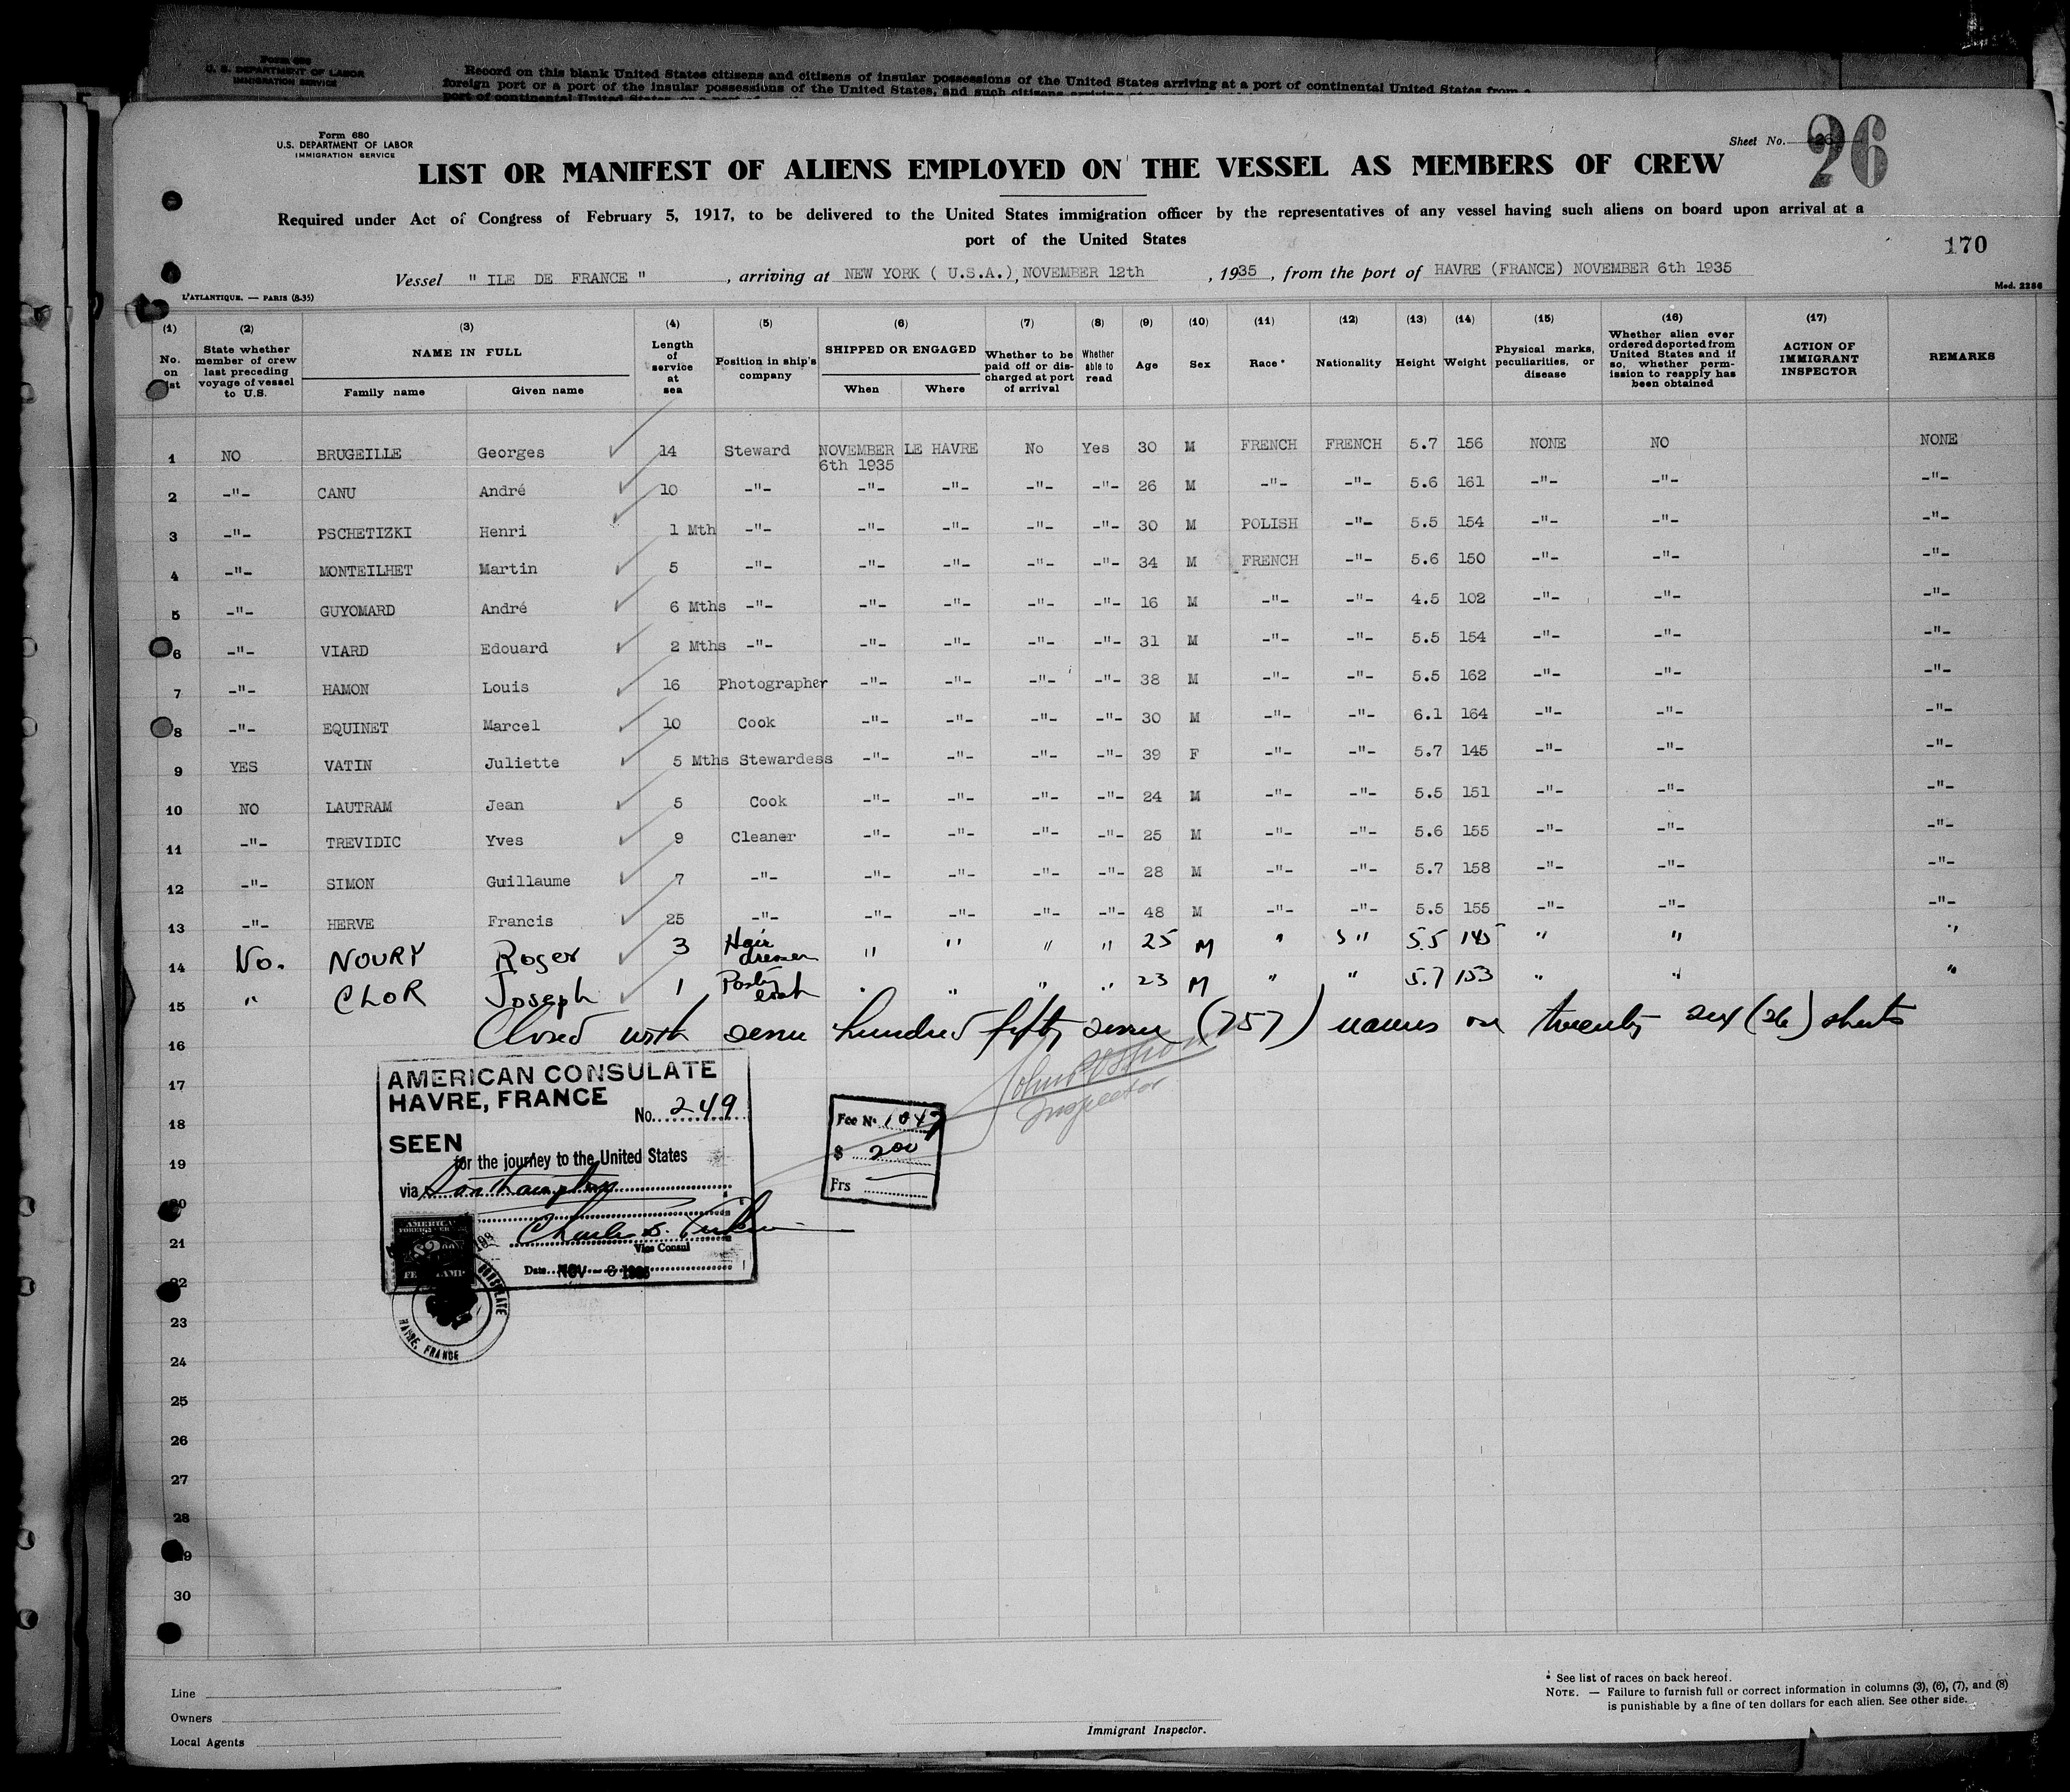 Form 680
U. S. DEPARTMENT OF LABOR
IMMIGRATION SERVICE
Record on this blank United States citizens and citizens of insular possessions of the United States arriving at a port of continental United States from a
foreign port or a port of the insular possessions of the United States, and such citizens arriving at a
port of continental United States
Form 680
U.S. DEPARTMENT OF LABOR
IMMIGRATION SERVICE
Sheet No. 26
26
LIST OR MANIFEST OF ALIENS EMPLOYED ON THE VESSEL AS MEMBERS OF CREW
Required under Act of Congress of February 5, 1917, to be delivered to the United States immigration officer by the representatives of any vessel having such aliens on board upon arrival at a
port of the United States
170
Vessel " ILE DE FRANCE ", arriving at NEW YORK ( U.S.A.), NOVEMBER 12th, 1935, from the port of HAVRE (FRANCE) NOVEMBER 6th 1935
L'ATLANTIQUE. — PARIS (8-35)
Mod. 2286
(1) No. on list
(2) State whether member of crew last preceding voyage of vessel to U.S.
(3) NAME IN FULL Family name Given name
(4) Length of service at sea
(5) Position in ship's company
(6) SHIPPED OR ENGAGED When Where
(7) Whether to be paid off or discharged at port of arrival
(8) Whether able to read
(9) Age
(10) Sex
(11) Race *
(12) Nationality
(13) Height
(14) Weight
(15) Physical marks, peculiarities, or disease
(16) Whether alien ever ordered deported from United States and if so, whether permission to reapply has been obtained
(17) ACTION OF IMMIGRANT INSPECTOR
REMARKS
1 NO BRUGEILLE Georges 14 Steward NOVEMBER 6th 1935 LE HAVRE No Yes 30 M FRENCH FRENCH 5.7 156 NONE NO NONE
2 -"- CANU André 10 -"- -"- -"- -"- -"- 26 M -"- -"- 5.6 161 -"- -"- -"-
3 -"- PSCHETIZKI Henri 1 Mth -"- -"- -"- -"- -"- 30 M POLISH -"- 5.5 154 -"- -"- -"-
4 -"- MONTEILHET Martin 5 -"- -"- -"- -"- -"- 34 M FRENCH -"- 5.6 150 -"- -"- -"-
5 -"- GUYOMARD André 6 Mths -"- -"- -"- -"- -"- 16 M -"- -"- 4.5 102 -"- -"- -"-
6 -"- VIARD Edouard 2 Mths -"- -"- -"- -"- -"- 31 M -"- -"- 5.5 154 -"- -"- -"-
7 -"- HAMON Louis 16 Photographer -"- -"- -"- -"- 38 M -"- -"- 5.5 162 -"- -"- -"-
8 -"- EQUINET Marcel 10 Cook -"- -"- -"- -"- 30 M -"- -"- 6.1 164 -"- -"- -"-
9 YES VATIN Juliette 5 Mths Stewardess -"- -"- -"- -"- 39 F -"- -"- 5.7 145 -"- -"- -"-
10 NO LAUTRAM Jean 5 Cook -"- -"- -"- -"- 24 M -"- -"- 5.5 151 -"- -"- -"-
11 -"- TREVIDIC Yves 9 Cleaner -"- -"- -"- -"- 25 M -"- -"- 5.6 155 -"- -"- -"-
12 -"- SIMON Guillaume 7 -"- -"- -"- -"- -"- 28 M -"- -"- 5.7 158 -"- -"- -"-
13 -"- HERVE Francis 25 -"- -"- -"- -"- -"- 48 M -"- -"- 5.5 155 -"- -"- -"-
14 No. NOURY Roger 3 Hair dresser " " " " 25 M " " 5.5 145 " " "
15 " CHOR Joseph 1 " " " " 23 M " " 5.7 153 " " "
Closed with seven hundred fifty seven (757) names on twenty six (26) sheets
16
17
18
19
20
21
22
23
24
25
26
27
28
29
30
AMERICAN CONSULATE
HAVRE, FRANCE
No. 249
SEEN
for the journey to the United States
via Southampton
Charles
Vice Consul
Date NOV - 6 1935
HAVRE, FRANCE
Fee No 1047
$ 200
Frs
Inspector
* See list of races on back hereof.
NOTE. — Failure to furnish full or correct information in columns (3), (6), (7), and (8)
is punishable by a fine of ten dollars for each alien. See other side.
Line
Owners
Local Agents
Immigrant Inspector.